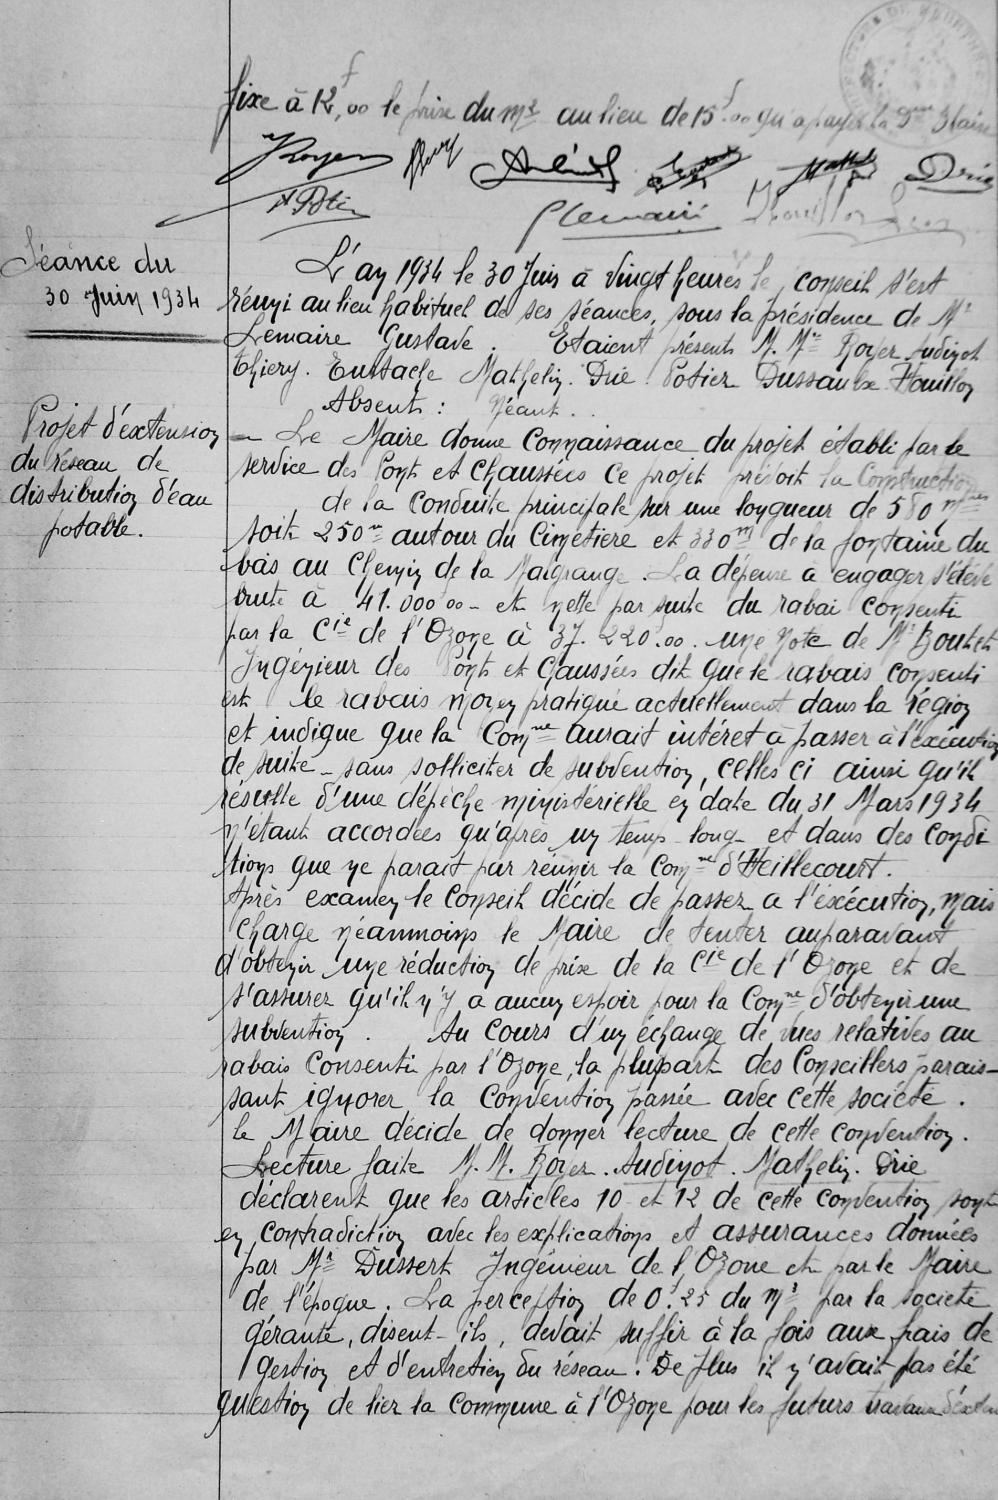 fixe à 12f,00 le prix du m2 au lieu de 15f.00 qu'a payer la Dme Blaise
Royer
Audinot
Drie
Potier
G Lemaire
Séance du
30 Juin 1934
L'an 1934 le 30 Juin à vingt heures le conseil s'est
réuni au lieu habituel de ses séances, sous la présidence de Mr
Lemaire Gustave. Etaient présents M. Mrs Royer Audinot
Thiery. Eustache Mathelin. Drie. Potier Dussaulx Houillon
Absents : Néant..
Projet d'éxtension
du réseau de
distribution d'eau
potable.
– Le Maire donne connaissance du projet établi par le
service des Ponts et Chaussées ce projet prévoit la Construction
de la conduite principale sur une longueur de 580 mtres
soit 250m autour du Cimetière et 330m de la fontaine du
bas au Chemin de la Malgrange. La dépense à engager s'élève
brute à 41.000f00 – et nette par suite du rabai consenti
par la Cie de l'Ozone à 37.220f.00. une note de Mr Bouchet
Ingénieur des Ponts et Chaussées dit que le rabais consenti
est le rabais moyen pratiqué actuellement dans la région
et indique que la Comne aurait intéret à passer à l'exécution
de suite – sans solliciter de subvention, celles ci ainsi qu'il
résulte d'une dépêche ministérielle en date du 31 Mars 1934
n'étant accordées qu'après un temps long – et dans des condi
tions que ne parait pas réunir la Comne d'Heillecourt.
Après examen le Conseil décide de passer a l'éxécution, mais
charge néanmoins le Maire de tenter auparavant
d'obtenir une réduction de prix de la Cie de l'Ozone et de
s'assurer qu'il n'y a aucun espoir pour la Comne d'obtenir une
subvention. Au cours d'un échange de vues relatives au
rabais consenti par l'Ozone, la plupart des Conseillers parais–
sant ignorer la convention passée avec cette société.
le Maire décide de donner lecture de cette convention.
Lecture faite M.M. Royer. Audinot. Mathelin. Drie
déclarent que les articles 10 et 12 de cette convention sont
en contradiction avec les explications et assurances données
par Mr Dussert Ingénieur de l'Ozone et par le Maire
de l'époque. La perception de 0f.25 du m3 par la société
gérante, disent-ils, devait suffir à la fois aux frais de
gestion et d'entretien du réseau. De plus il n'avait pas été
question de lier la commune à l'Ozone pour les futurs travaux